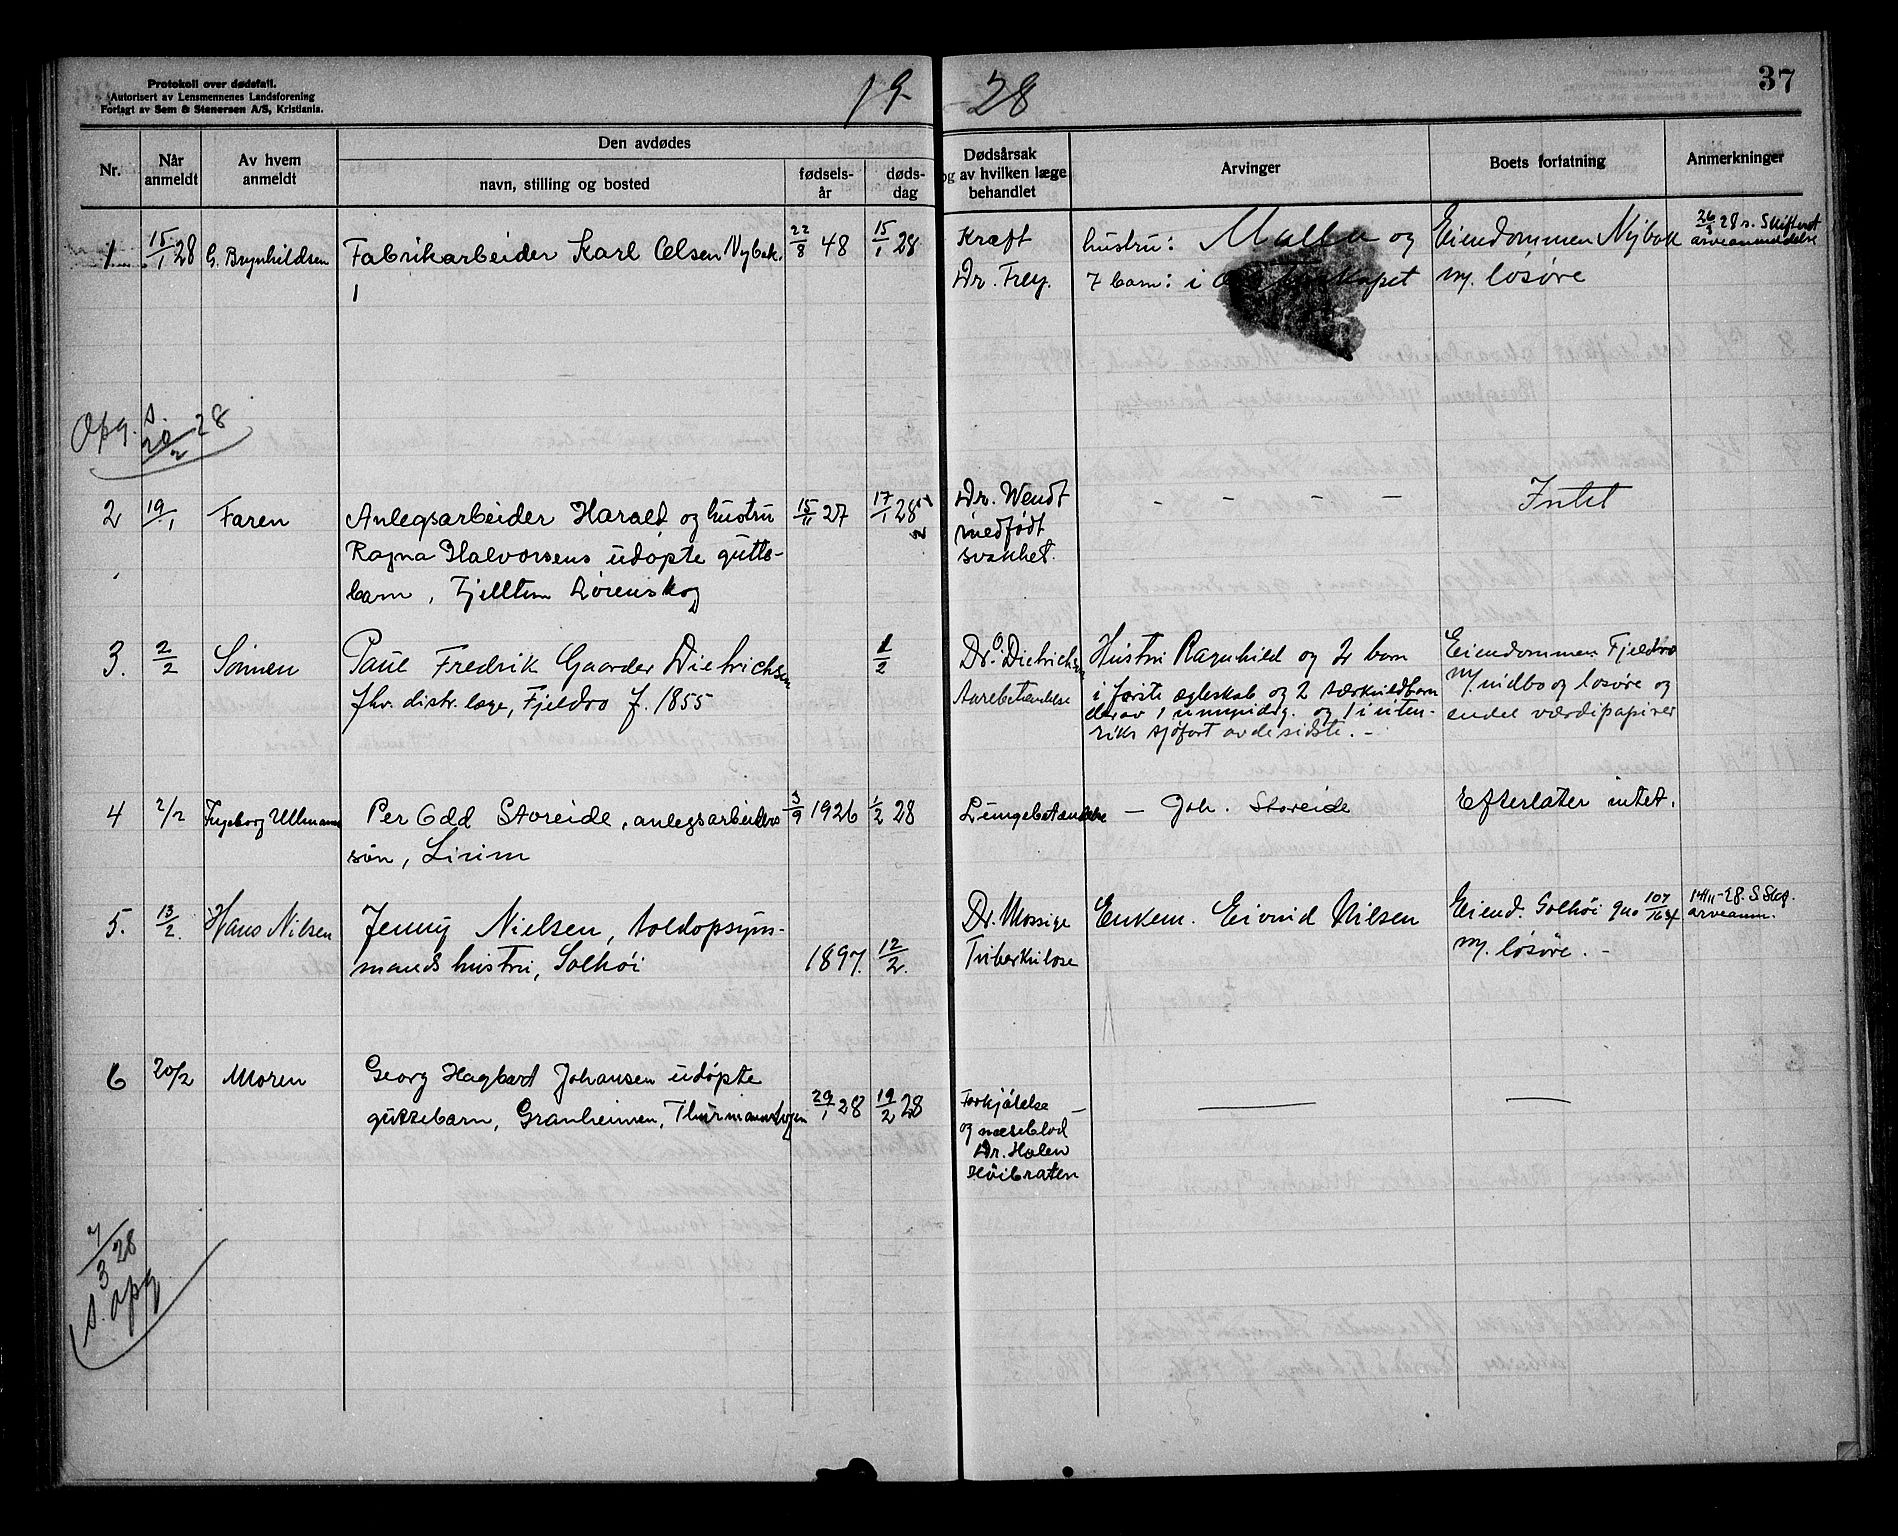 Protokoll over dødsfall.
Autorisert av Lensmennenes Landsforening
Forlagt av Sem & Stenersen A/S, Kristiania.
19 - 28
37
Nr.
Når anmeldt
Av hvem anmeldt
Den avdødes
navn, stilling og bosted
fødselsår
dødsdag
Dødsårsak og av hvilken læge behandlet
Arvinger
Boets forfatning
Anmerkninger
1 15/1 28 G. Brynhildsen Fabrikarbeider Karl Olsen Nybak. 22/8 48 15/1 28 Kræft hustru: og Eiendommen Nybak 26/3 28 s. Skifteret
Dr. Frey. 7 barn: i m/. løsøre arveanmeldelse
Opg. s. 20/2 28
2 19/1 Faren Anlegsarbeider Harald og hustru 15/11 27 17/1 28 Dr. Wendt - - - - Intet
Ragna Halvorsens udøpte gutte- medfødt
barn, Fjelltun Lørenskog svakhet.
3. 2/2 Sønnen Paul Fredrik Gaarder Dietrichsen 1/2 Dr. O. Dietrichsen Hustru Ragnhild og 2 barn Eiendommen Fjeldro
fhv. distr. læge, Fjeldro f. 1855 Aarebetændelse i første ægteskab og 2 særkuldbarn m/. indbo og løsøre og
derav 1 umyndig. og 1 i uten- endel værdipapirer
riks sjøfart av de sidste. -
4 2/2 Ingeborg Ullmann Per Odd Storeide, anlegsarbeiders 3/9 1926 1/2 28 Lungebetændelse - Joh. Storeide Efterlater intet.
søn, Lirim
5. 13/2. Hans Nilsen Jenny Nielsen, toldopsyns- Dr. Mossige Enkem. Eivind Nilsen Eiend. Solhøi gno 107/164 14/11-28. S. Skf.
mands hustru, Solhøi 1897. 12/2. Tuberkulose m/. løsøre. - arveanm.
6 20/2 Moren Georg Hagbart Johansen udøpte
guttebarn, Granheimen, Thurmannskogen 29/1 28 19/2 28 Forkjølelse -
og næseblod
Dr. Holen
Høibraten
7/3 28
s. opg